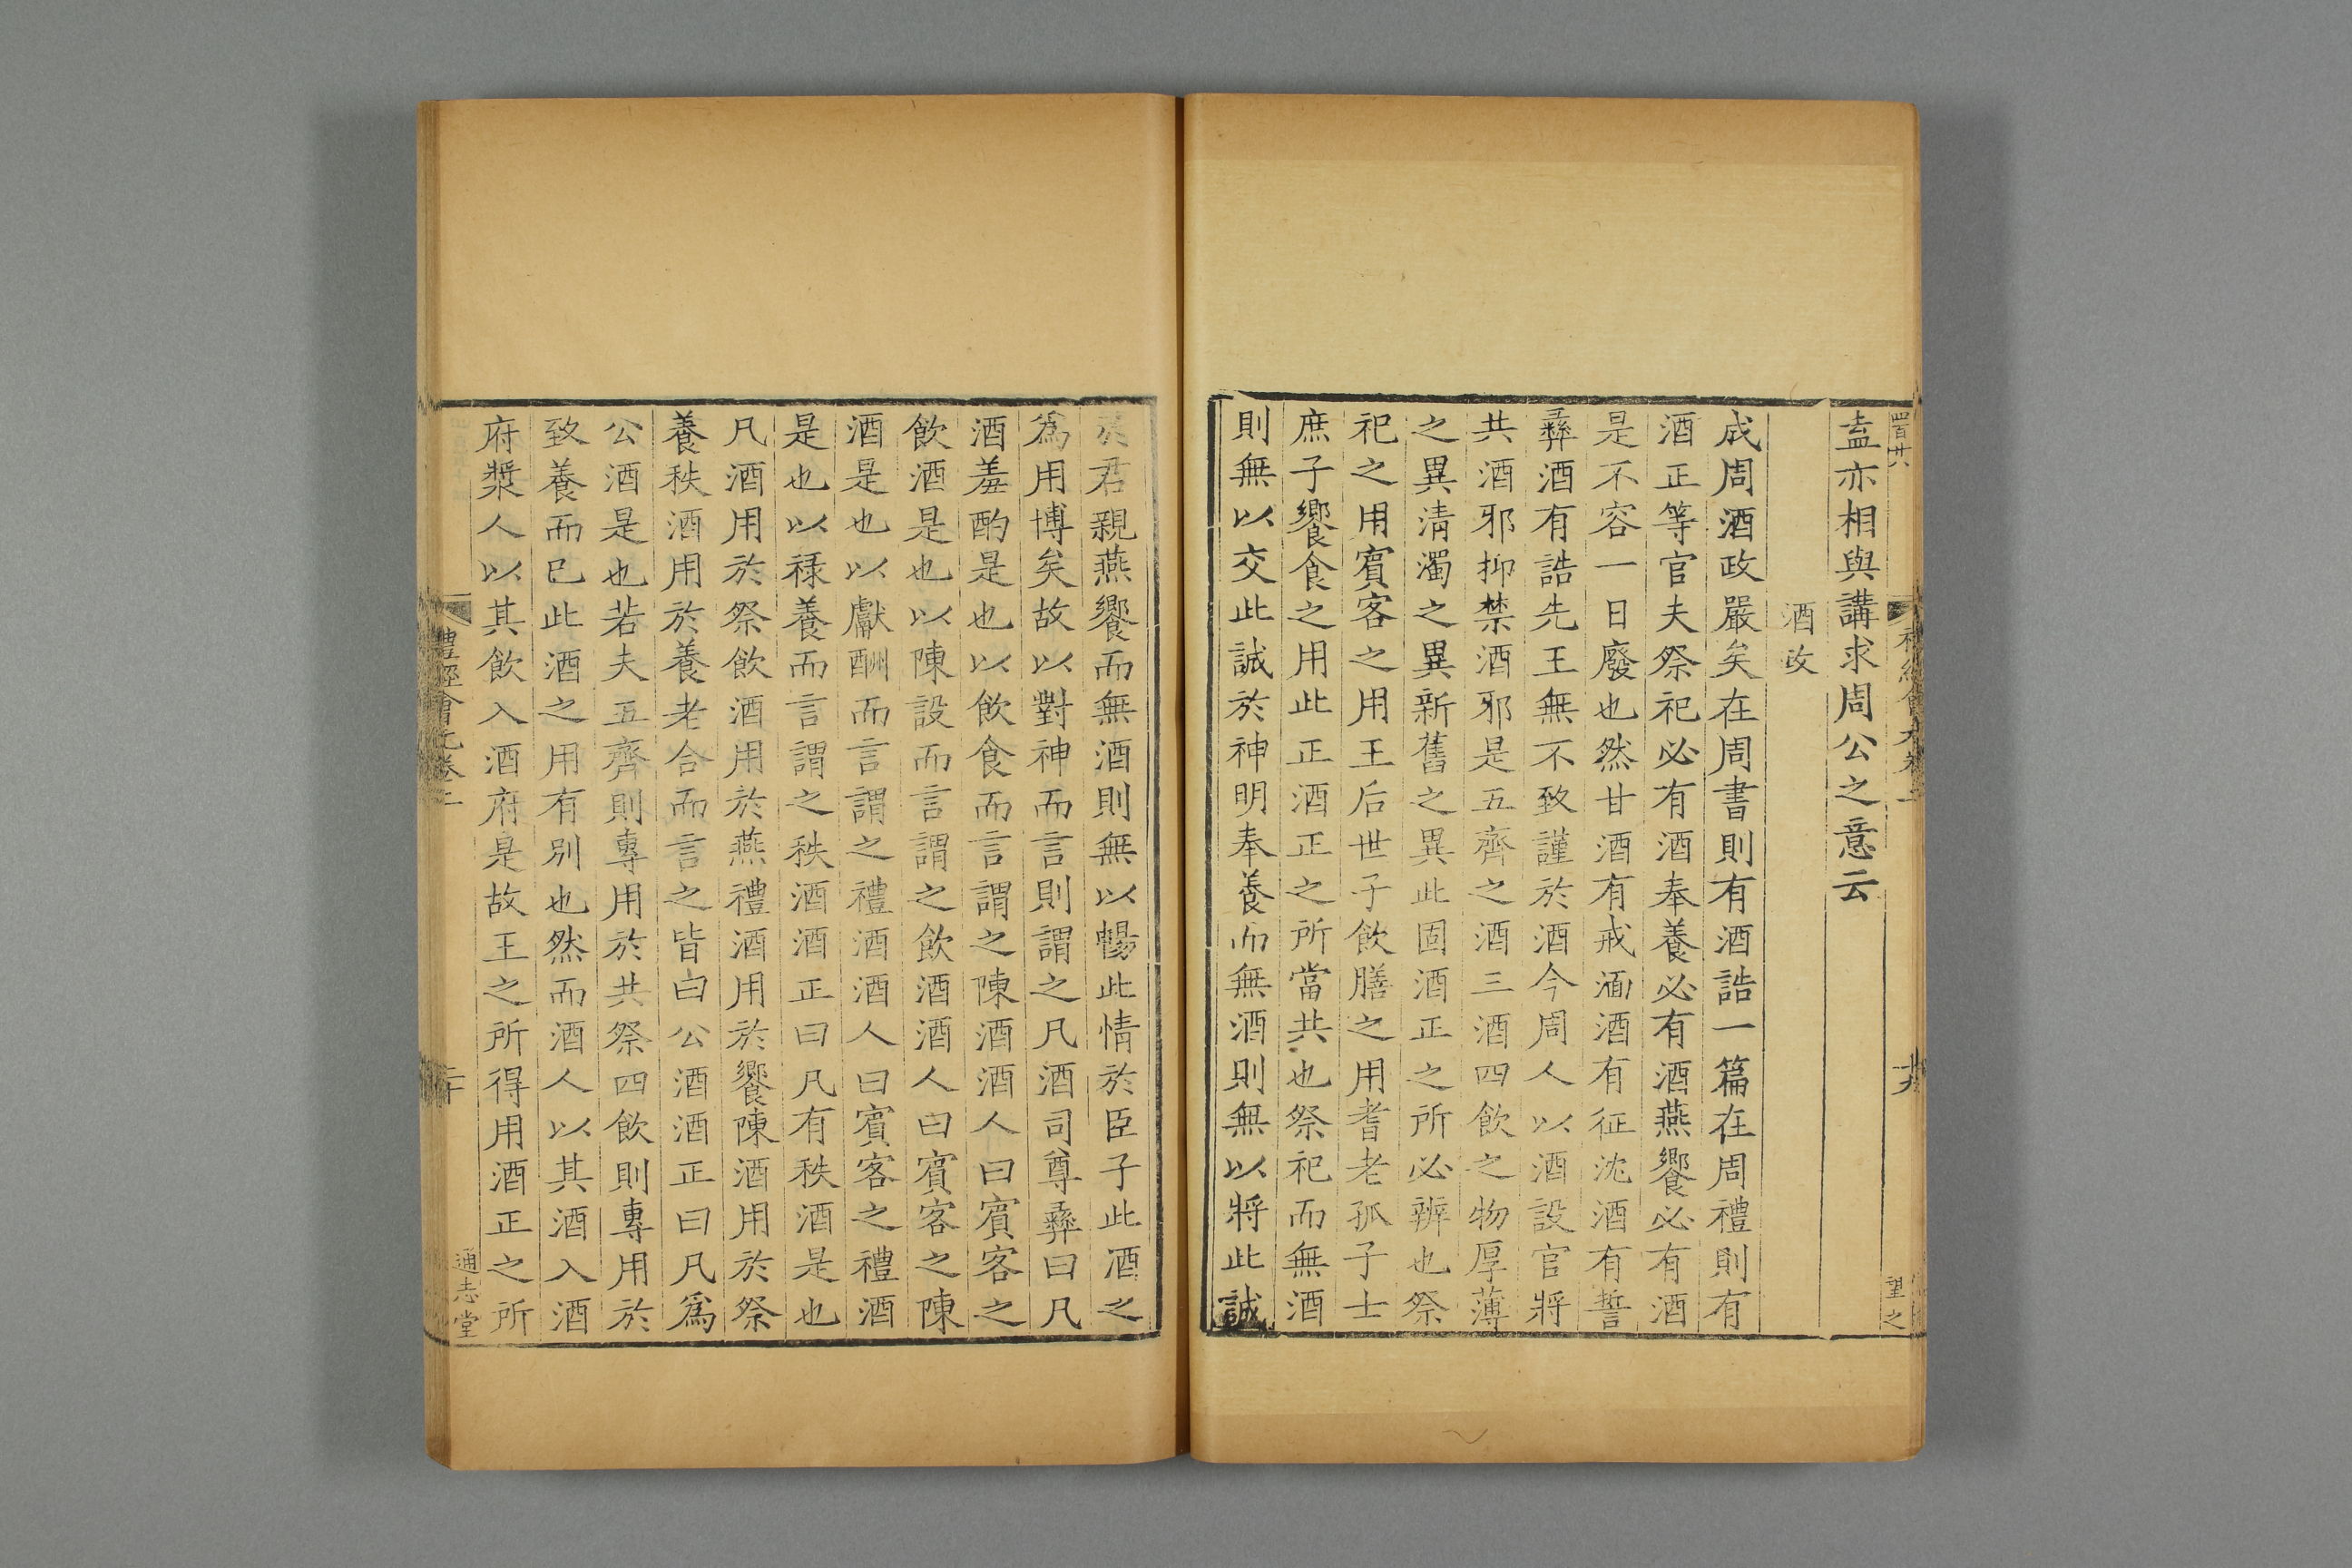 盍亦相與講求周公之意云
酒政
成周酒政嚴矣在周書則有酒誥一篇在周禮則有
酒正等官夫祭祀必有酒奉養必有酒燕饗必有酒
是不容一日廢也然甘酒有戒湎酒有征沈酒有誓
彝酒有誥先王無不致謹於酒今周人以酒設官將
共酒邪抑禁酒邪是五齊之酒三酒四飲之物厚薄
之異淸濁之異新舊之異此固酒正之所必辨也祭
祀之用賓客之用王后世子飲膳之用耆老孤子士
庶子饗食之用此正酒正之所當共也祭祀而無酒
則無以交此誠於神明奉養而無酒則無以將此誠
於君親燕饗而無酒則無以暢此情於臣子此酒之
爲用博矣故以對神而言則謂之凡酒司尊彝曰凡
酒羞酌是也以飲食而言謂之陳酒酒人曰賓客之
飲酒是也以陳設而言謂之飲酒酒人曰賓客之陳
酒是也以獻酬而言謂之禮酒酒人曰賓客之禮酒
是也以祿養而言謂之秩酒酒正曰凡有秩酒是也
凡酒用於祭飲酒用於燕禮酒用於饗陳酒用於祭
養秩酒用於養老合而言之皆曰公酒酒正曰凡爲
公酒是也若夫五齊則專用於共祭四飲則專用於
致養而已此酒之用有別也然而酒人以其酒入酒
府漿人以其飲入酒府是故王之所得用酒正之所
禮經會元卷二
二十
通志堂